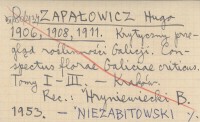 ZAPAŁOWICZ Hugo
1906, 1908, 1911. Krytyczny prze-
gląd roślinności Galicji. Con-
spectus florae Galiciae criticus.
Tomy I - III. — Kraków.
Rec.: "Hryniewiecki B.
1953. — "NIEZABITOWSKI %